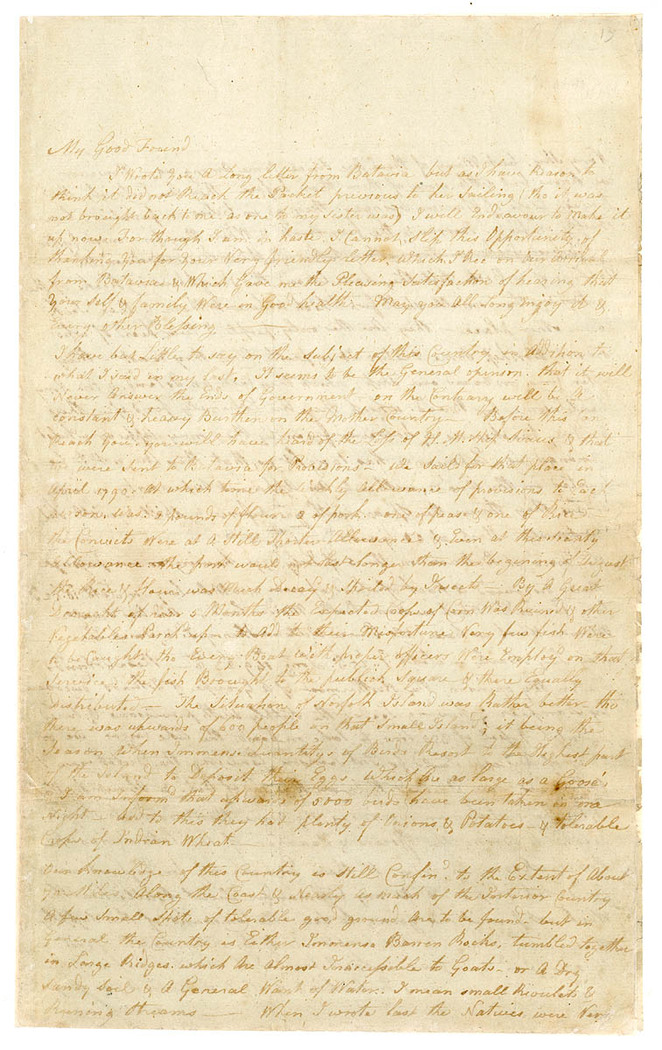 My Good Friend
I Wrote you A Long letter from Batavia but as I have Reason to
think it did not Reach the Packet previous to her Sailing (tho it was
not brought back to me as one to my Sister was) I will Endeavour to make it
up now. For though I am in haste I Cannot Slip this Opportunity of
thanking you for Your Very friendly letter which I Rec on our arrival
from Batavia & Which Gave me the Pleasing Satisfaction of hearing that
Your Self & family Were in Good health. May you All Long Injoy it &
Every other Blessing
I have but Little to say on the Subject of this Country in Addition to
what I Said in my last, It seems to be the General opinion that it will
Never Answer the Ends of Government on the Contrary will be A
constant & heavy Burthen on the Mother Country - Before this Can
Reach you you will have heard of the Loss of H. M. Ship Sirius & that
we were Sent to Batavia for Provisions - We Sail'd for that place in
April 1790 At which time the Weekly allowance of provisions to Each
person was 2 pounds of flour 2 of pork one of pease & one of Rice
the Convicts Were at A Still Shorter Allowance & Even at this scanty
allowance the pork would not last longer than the beginning of August
the Rice & flour was Much Decay'd & Spoiled by Insects - By A Great
Drought of near 5 Months the Expected Crops of Corn Was Ruin'd & other
Vegetables Parch'd up - to Add to their Misfortune Very few fish Were
to be Caught tho Even Boat with proper officers Were Employ'd on that
Service, the fish Brought to the publick Square & there Equally
Distributed - The Situation of Norfolk Island was Rather better tho
there was upwards of 600 people on that Small Island; it being the
Season When Immense Quantitys of Birds Resort to the Highest part
of the Island to Deposit their Eggs Which are as large as a Goose's
I am Inform'd that upwards of 5000 birds have been taken in one
Night - add to this they had plenty of Onions & Potatoes - & tolerable
Crops of Indian Wheat -
Our Knowledge of this Country is Still Confin'd to the Extent of About
Miles Along the Coast & Nearly as much of the Interior Country
A few Small Spots of tolerable good ground Are to be found but in
General the Country is Either Immense Barren Rocks, tumbled together
in Large Ridges which Are Almost Inaccessible to Goats - or A Dry
Sandy Soil & A General Want of Water. I mean small Rivulets &
Running Streams When I wrote last the Natives were Very